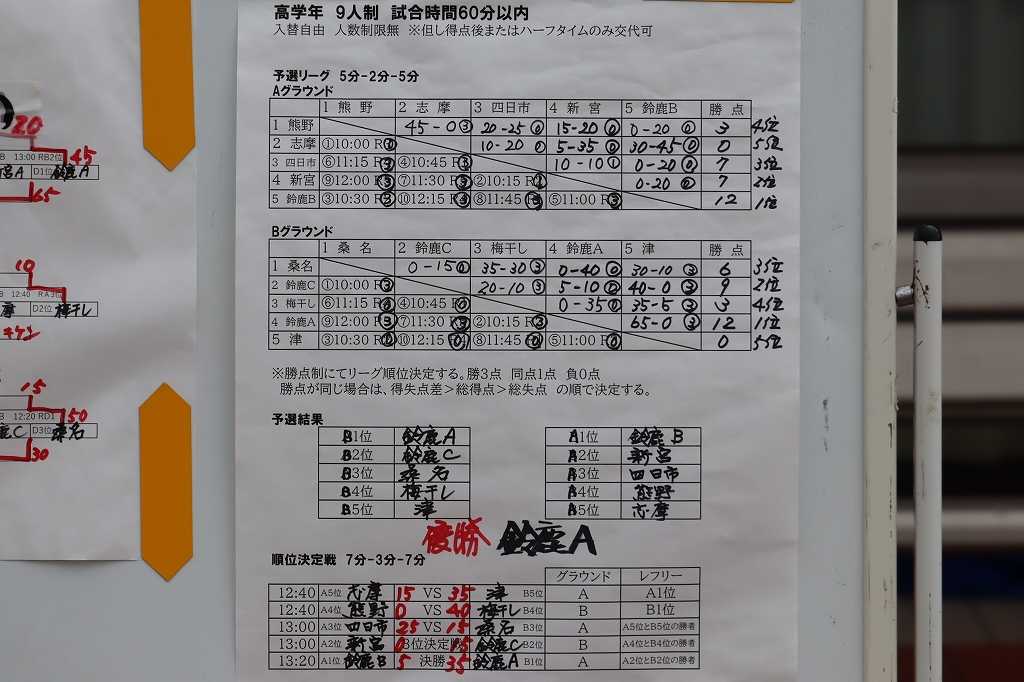 高学年 9人制 試合時間60分以内
入替自由 人数制限無 ※但し得点後またはハーフタイムのみ交代可
予選リーグ 5分-2分-5分
Aグラウンド
1 熊野 2 志摩 3 四日市 4 新宮 5 鈴鹿B 勝点
1 熊野 45-0③ 20-25⓪ 15-20⓪ 0-20⓪ 3 4位
2 志摩 ①10:00 10-20⓪ 5-35⓪ 30-45⓪ 0 5位
3 四日市 ⑥11:15 ④10:45 10-10① 0-20⓪ 7 3位
4 新宮 ⑨12:00 ⑦11:30 ②10:15 0-20⓪ 7 2位
5 鈴鹿B ③10:30 ⑩12:15 ⑧11:45 ⑤11:00 12 1位
Bグラウンド
1 桑名 2 鈴鹿C 3 梅干し 4 鈴鹿A 5 津 勝点
1 桑名 0-15⓪ 35-30③ 0-40⓪ 30-10③ 6 3位
2 鈴鹿C ①10:00 20-10③ 5-10⓪ 40-0③ 9 2位
3 梅干し ⑥11:15 ④10:45 0-35⓪ 35-5③ 3 4位
4 鈴鹿A ⑨12:00 ⑦11:30 ②10:15 65-0③ 12 1位
5 津 ③10:30 ⑩12:15 ⑧11:45 ⑤11:00 0 5位
※勝点制にてリーグ順位決定する。勝3点 同点1点 負0点
勝点が同じ場合は、得失点差>総得点>総失点 の順で決定する。
予選結果
B1位 鈴鹿A A1位 鈴鹿B
B2位 鈴鹿C A2位 新宮
B3位 桑名 A3位 四日市
B4位 梅干し A4位 熊野
B5位 津 A5位 志摩
優勝 鈴鹿A
順位決定戦 7分-3分-7分
グラウンド レフリー
12:40 A5位 志摩 15 VS 35 津 B5位 A A1位
12:40 A4位 熊野 0 VS 40 梅干し B4位 B B1位
13:00 A3位 四日市 25 VS 15 桑名 B3位 A A5位とB5位の勝者
13:00 A2位 新宮 0 3位決定戦 15 鈴鹿C B2位 B A4位とB4位の勝者
13:20 A1位 鈴鹿B 5 決勝 35 鈴鹿A B1位 A A2位とB2位の勝者
20
45
13:00 RB2位
宮A D1位 鈴鹿A
65
10
12:40 RA3位
摩 D2位 梅干し
キケン
15
12:20 RD1 50
鹿C D3位 桑名
30